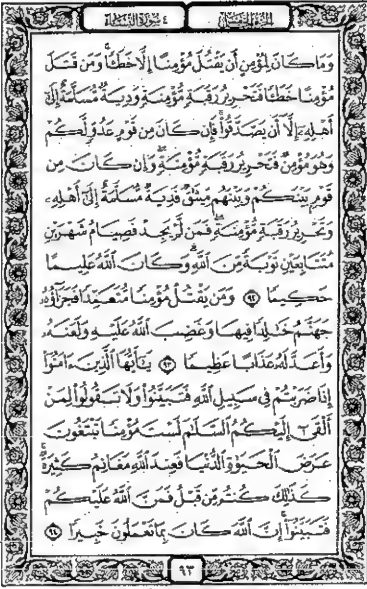 الجزء الخامس ٤ سورة النساء
وَمَا كَانَ لِمُؤْمِنٍ أَن يَقْتُلَ مُؤْمِنًا إِلَّا خَطَـًٔا وَمَن قَتَلَ
مُؤْمِنًا خَطَـًٔا فَتَحْرِيرُ رَقَبَةٍ مُّؤْمِنَةٍ وَدِيَةٌ مُّسَلَّمَةٌ إِلَىٰٓ
أَهْلِهِۦٓ إِلَّآ أَن يَصَّدَّقُوا۟ فَإِن كَانَ مِن قَوْمٍ عَدُوٍّ لَّكُمْ
وَهُوَ مُؤْمِنٌ فَتَحْرِيرُ رَقَبَةٍ مُّؤْمِنَةٍ وَإِن كَانَ مِن
قَوْمٍۭ بَيْنَكُمْ وَبَيْنَهُم مِّيثَـٰقٌ فَدِيَةٌ مُّسَلَّمَةٌ إِلَىٰٓ أَهْلِهِۦ
وَتَحْرِيرُ رَقَبَةٍ مُّؤْمِنَةٍ فَمَن لَّمْ يَجِدْ فَصِيَامُ شَهْرَيْنِ
مُتَتَابِعَيْنِ تَوْبَةً مِّنَ ٱللَّهِ وَكَانَ ٱللَّهُ عَلِيمًا
حَكِيمًا ٩٢ وَمَن يَقْتُلْ مُؤْمِنًا مُّتَعَمِّدًا فَجَزَآؤُهُۥ
جَهَنَّمُ خَـٰلِدًا فِيهَا وَغَضِبَ ٱللَّهُ عَلَيْهِ وَلَعَنَهُۥ
وَأَعَدَّ لَهُۥ عَذَابًا عَظِيمًا ٩٣ يَـٰٓأَيُّهَا ٱلَّذِينَ ءَامَنُوٓا۟
إِذَا ضَرَبْتُمْ فِى سَبِيلِ ٱللَّهِ فَتَبَيَّنُوا۟ وَلَا تَقُولُوا۟ لِمَنْ
أَلْقَىٰٓ إِلَيْكُمُ ٱلسَّلَـٰمَ لَسْتَ مُؤْمِنًا تَبْتَغُونَ
عَرَضَ ٱلْحَيَوٰةِ ٱلدُّنْيَا فَعِندَ ٱللَّهِ مَغَانِمُ كَثِيرَةٌ
كَذَٰلِكَ كُنتُم مِّن قَبْلُ فَمَنَّ ٱللَّهُ عَلَيْكُمْ
فَتَبَيَّنُوٓا۟ إِنَّ ٱللَّهَ كَانَ بِمَا تَعْمَلُونَ خَبِيرًا ٩٤
٩٣